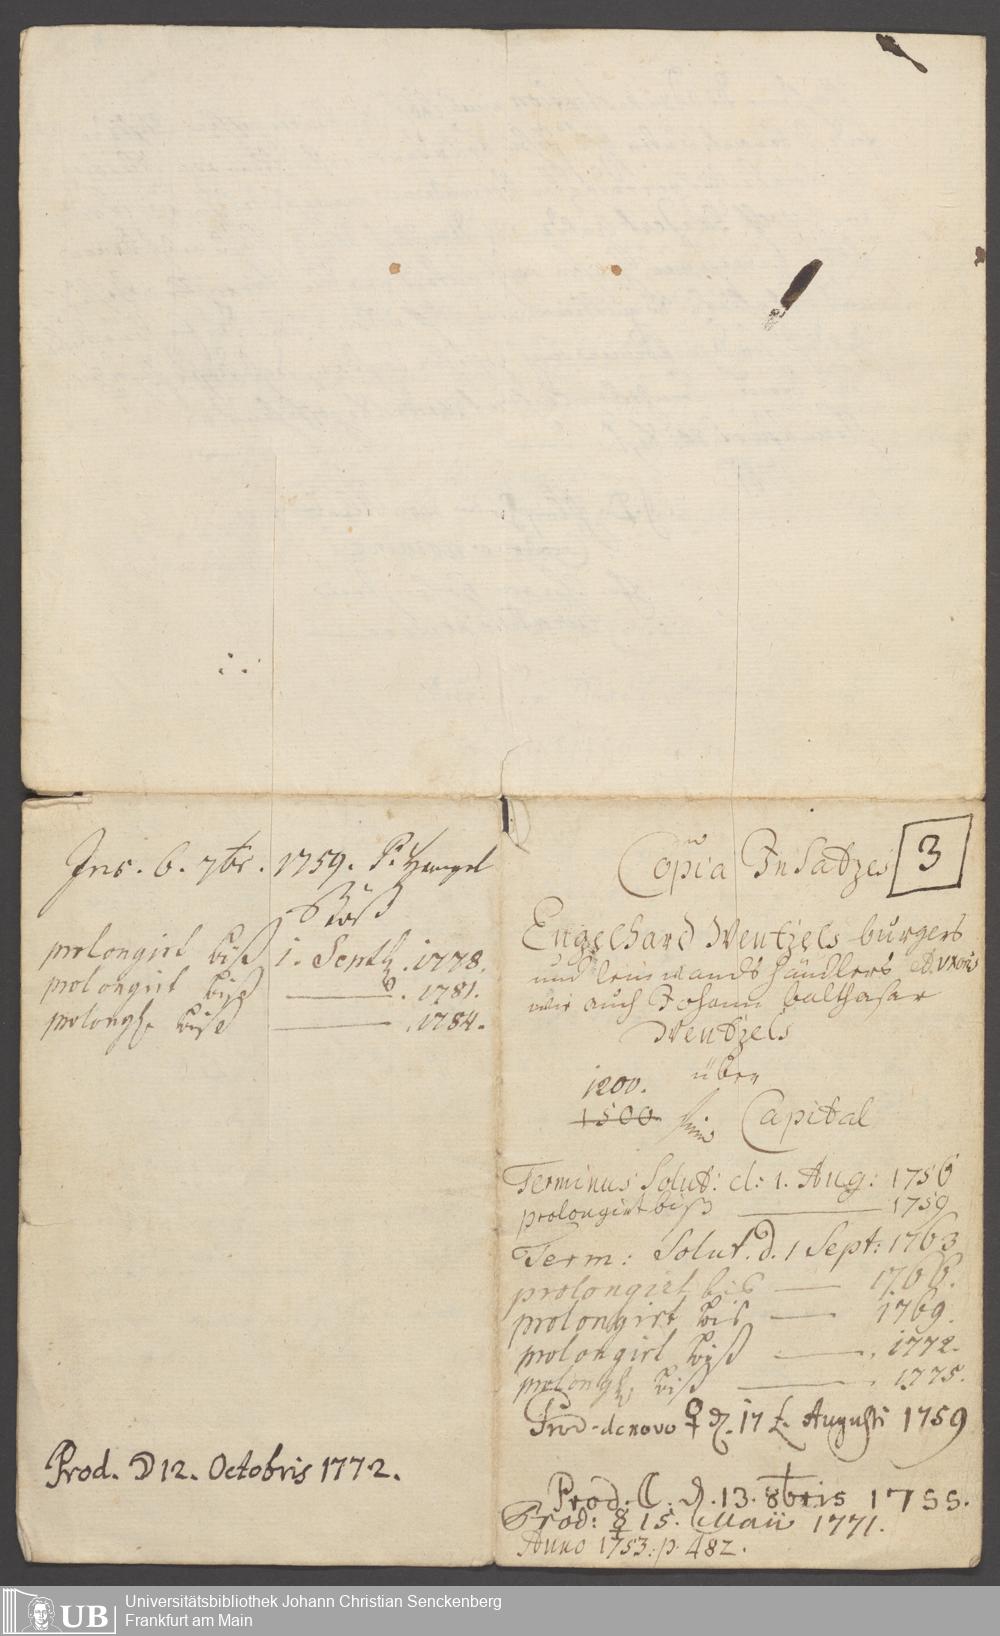 Ins. 6. 7br. 1759. P.
prolongirt biß 1. Septb. 1778.
prolongirt biß — . 1781.
prolong. biß — . 1784.
Prod. D 12. Octobris 1772.
3
Copia Insatzes
Engelhard Wentzels burgers
und leinwandshändlers & uxoris
wie auch Johann balthasar
Wentzels
über
1200.
1500 Capital
Terminus Solut: d: 1. Aug: 1756
prolongirt biß — 1759
Term: Solut. d. 1 Sept: 1763
prolongirt bis — 1766.
prolongirt bis — 1769.
prolongirt biß — . 1772.
prolong. biß — . 1775.
Prod. de novo ♀ d. 17 t. Augusti 1759
Prod. ☾. d. 13. 8bris 1755.
Prod: ☿ 15. Maii 1771.
Anno 1753: p. 482.
UB
Universitätsbibliothek Johann Christian Senckenberg
Frankfurt am Main